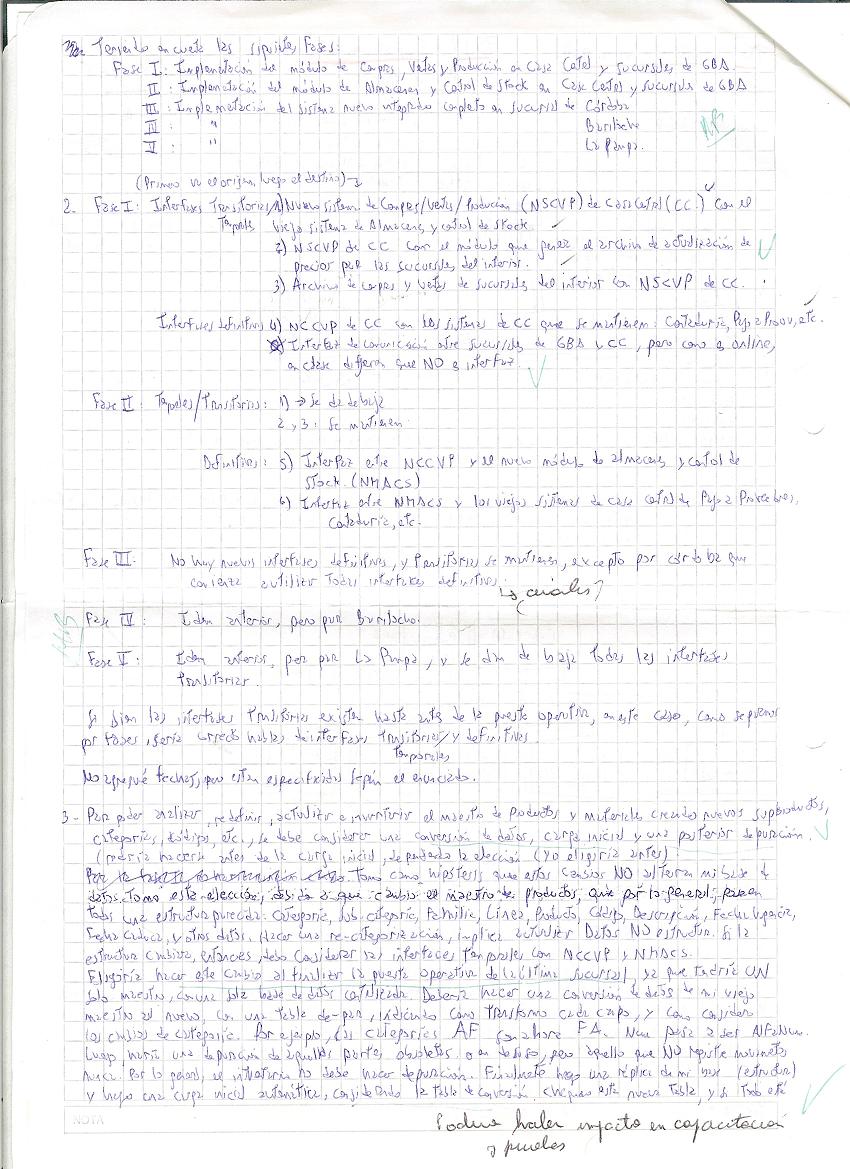 Teniendo en cuenta las siguientes Fases:
Fase I: Implementación del módulo de Compras, Ventas y Producción en Casa Central y sucursales de GBA.
II: Implementación del módulo de Almacenes y Control de Stock en Casa Central y sucursales de GBA
III: Implementación del sistema nuevo integrado completo en sucursal de Córdoba
IV: " Bariloche
V: " La Pampa.
(Primero va el origen, luego el destino)
2. Fase I: Interfases Transitorias/ 1) Nuevo sistema de Compras/Ventas/Producción (NSCVP) de Casa Central (CC.) con el
viejo sistema de Almacenes y control de stock.
2) NSCVP de CC con el módulo que genera el archivo de actualización de
precios para las sucursales del interior.
3) Archivo de compras y ventas de sucursales del interior con NSCVP de CC.
Interfases definitivas 4) NCCVP de CC con los sistemas de CC que se mantienen: Contaduría, Pago a Proov, etc.
Interfaz de comunicación entre sucursales de GBA y CC, pero como es online,
en clase dijeron que NO es interfaz.
Fase II: Temporales/Transitorias: 1) → Se da de baja
2 y 3: Se mantienen
Definitivas: 5) Interfaz entre NCCVP y el nuevo módulo de almacenes y control de
Stock. (NMACS)
6) Interfaz entre NMACS y los viejos sistemas de casa central de Pago a Proveedores,
Contaduría, etc.
Fase III: No hay nuevas interfases definitivas, y Transitorias se mantienen, excepto por córdoba que
comienza a utilizar Todas interfases definitivas.
↳ ¿cuáles?
Fase IV: Idem anterior, pero para Bariloche.
Fase V: Idem anterior, pero para La Pampa, y se dan de baja Todas las interfases
Transitorias.
Si bien las interfases Transitorias existen hasta antes de la puesta operativa, en este caso, como separamos
por fases, sería correcto hablar de interfases Transitorias/ y definitivas.
Temporales
No agregué fechas, pero están especificadas según el enunciado.
3- Para poder analizar, redefinir, actualizar e inventariar el maestro de Productos y materiales creando nuevos subproductos,
categorías, códigos, etc., se debe considerar una conversión de datos, carga inicial y una posterior depuración.
(podría hacerse antes de la carga inicial, dependiendo la elección) (Yo eligiría antes).
Tomo como hipótesis que estos cambios NO alteran mi base de
datos. Tomo esta elección, debido a que cambio el maestro de productos, que por lo general, poseen
todos una estructura parecida: Categoría, Sub categoría, Familia, Línea, Producto, Código, Descripción, Fecha Vigencia,
Fecha Caduca, y otros datos. Hacer una re-categorización, implica actualizar Datos NO estructura. Si la
estructura cambiara, entonces, debo considerar las interfaces temporales con NCCVP y NMACS.
Elegiría hacer este cambio al finalizar la puesta operativa de la última sucursal, ya que tendría UN
solo maestro, con una sola base de datos centralizada. Debería hacer una conversión de datos de mi viejo
maestro al nuevo, con una tabla de-para, indicando como transformo cada campo, y como considero
los cambios de categorías. Por ejemplo, las categorías AF son ahora FA. Num pasa a ser AlfaNum.
Luego, haría una depuración de aquellas partes obsoletas, o en desuso, pero aquello que NO registre movimientos
nunca. Por lo general, el inventario no debe hacer depuración. Finalmente hago una réplica de mi base (estructura)
y hago una carga inicial automática, considerando la tabla de conversión. Chequeo esta nueva Tabla, y si todo está
NOTA
Podría haber impacto en capacitación
y pruebas